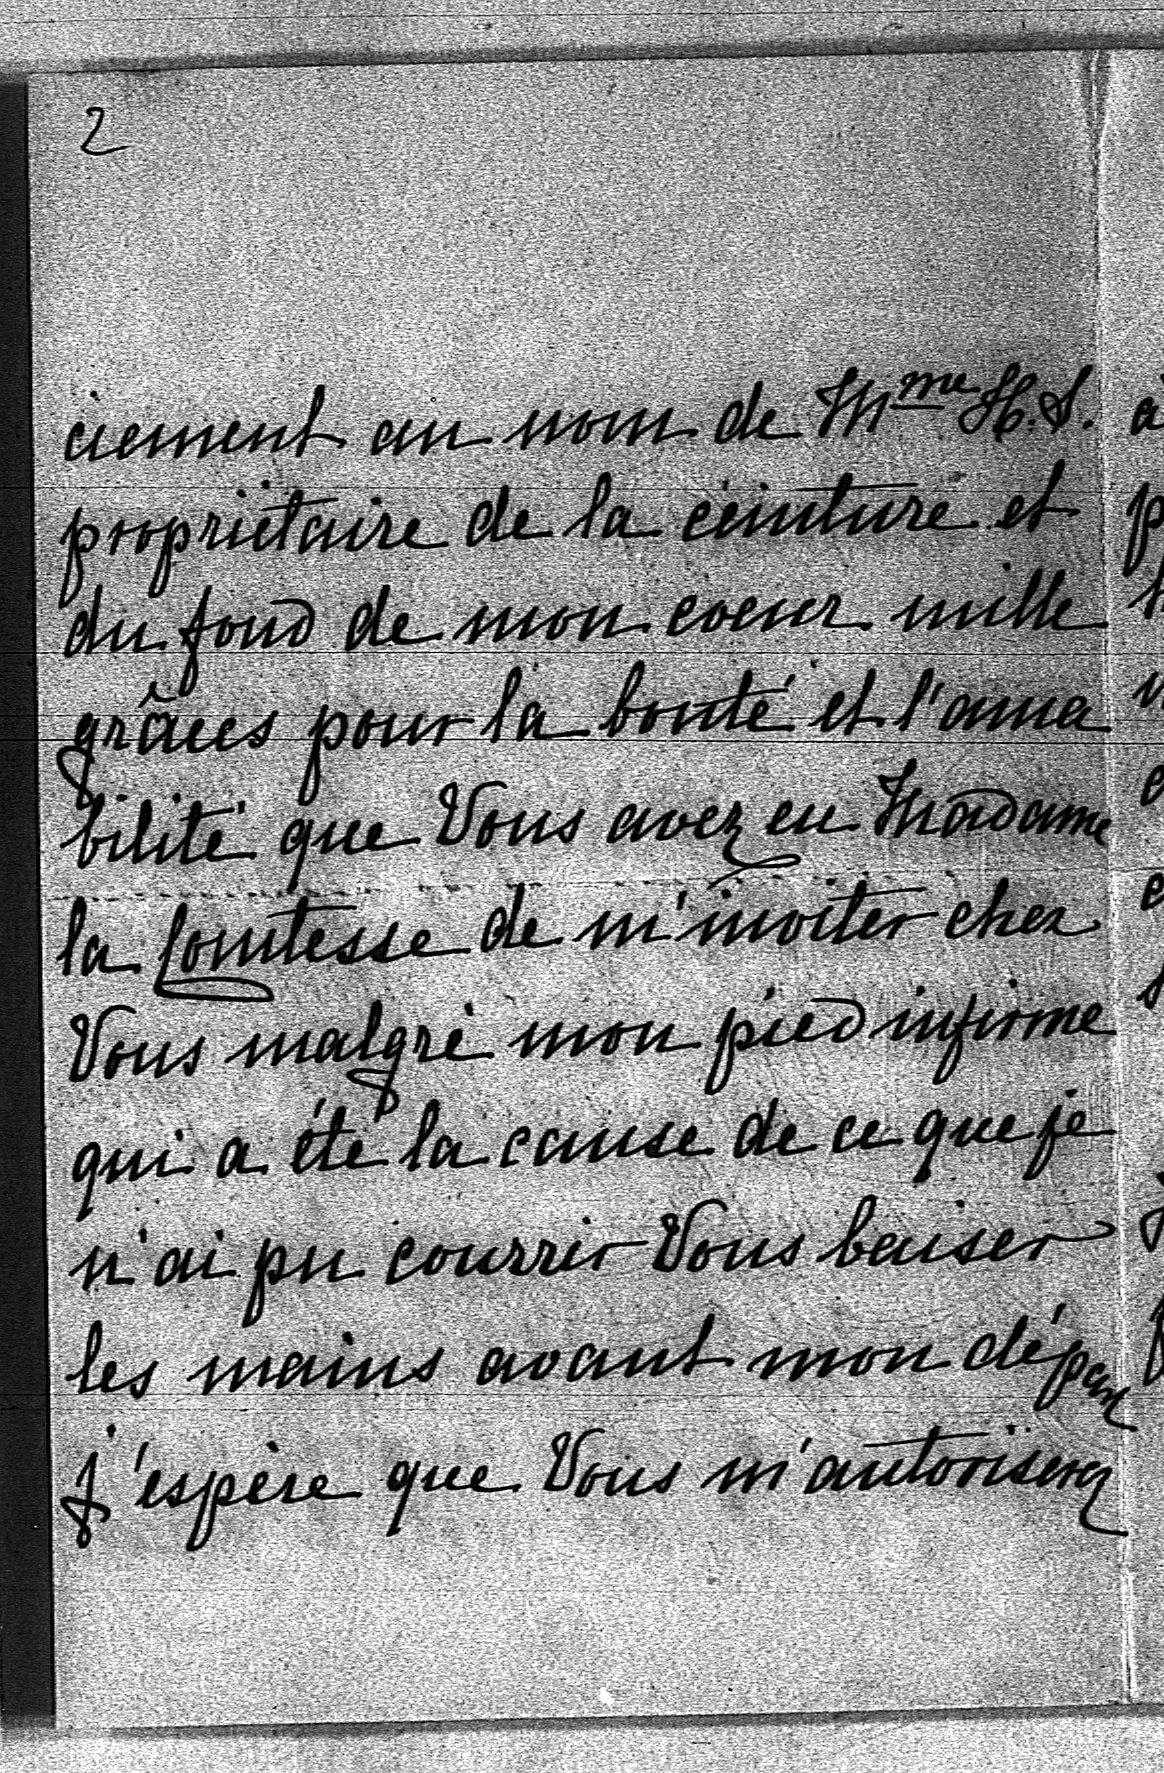 2
ciement au nom de Mme H. S.
propriétaire de la ceinture et
du fond de mon coeur mille
grâces pour la bonté et l'ama
bilité que Vous avez eu Madame
la Comtesse de m'inviter chez
Vous malgré mon pied infirme
qui a été la cause de ce que je
n'ai pu courrir Vous baiser
les mains avant mon départ
j'espère que Vous m'autoriserez